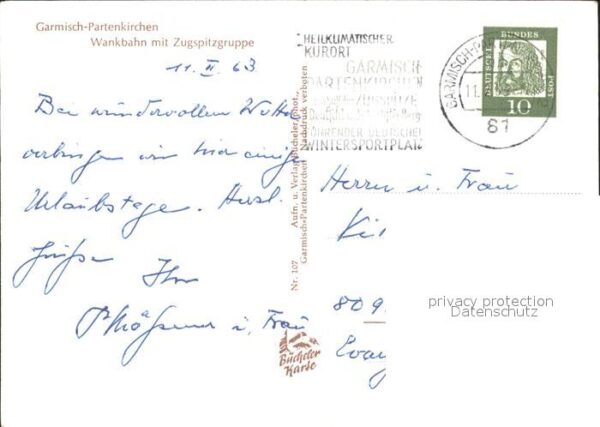 Garmisch-Partenkirchen
Wankbahn mit Zugspitzgruppe
11. II. 63
Bei wundervollem Wetter
verbringen wir hier einige
Urlaubstage. Herzl.
Grüße Ihr
u. Frau
HEILKLIMATISCHER
KURORT
GARMISCH
PARTENKIRCHEN
FÜHRENDER DEUTSCHER
WINTERSPORTPLATZ
GARMISCH-PA
11.
81
DEUTSCHE
BUNDES
POST
10
Nr. 107 Aufn. u. Verlag Bücheler
Garmisch-Partenkirchen Nachdruck verboten
Herrn u. Frau
809
privacy protection
Datenschutz
Bücheler
Karte